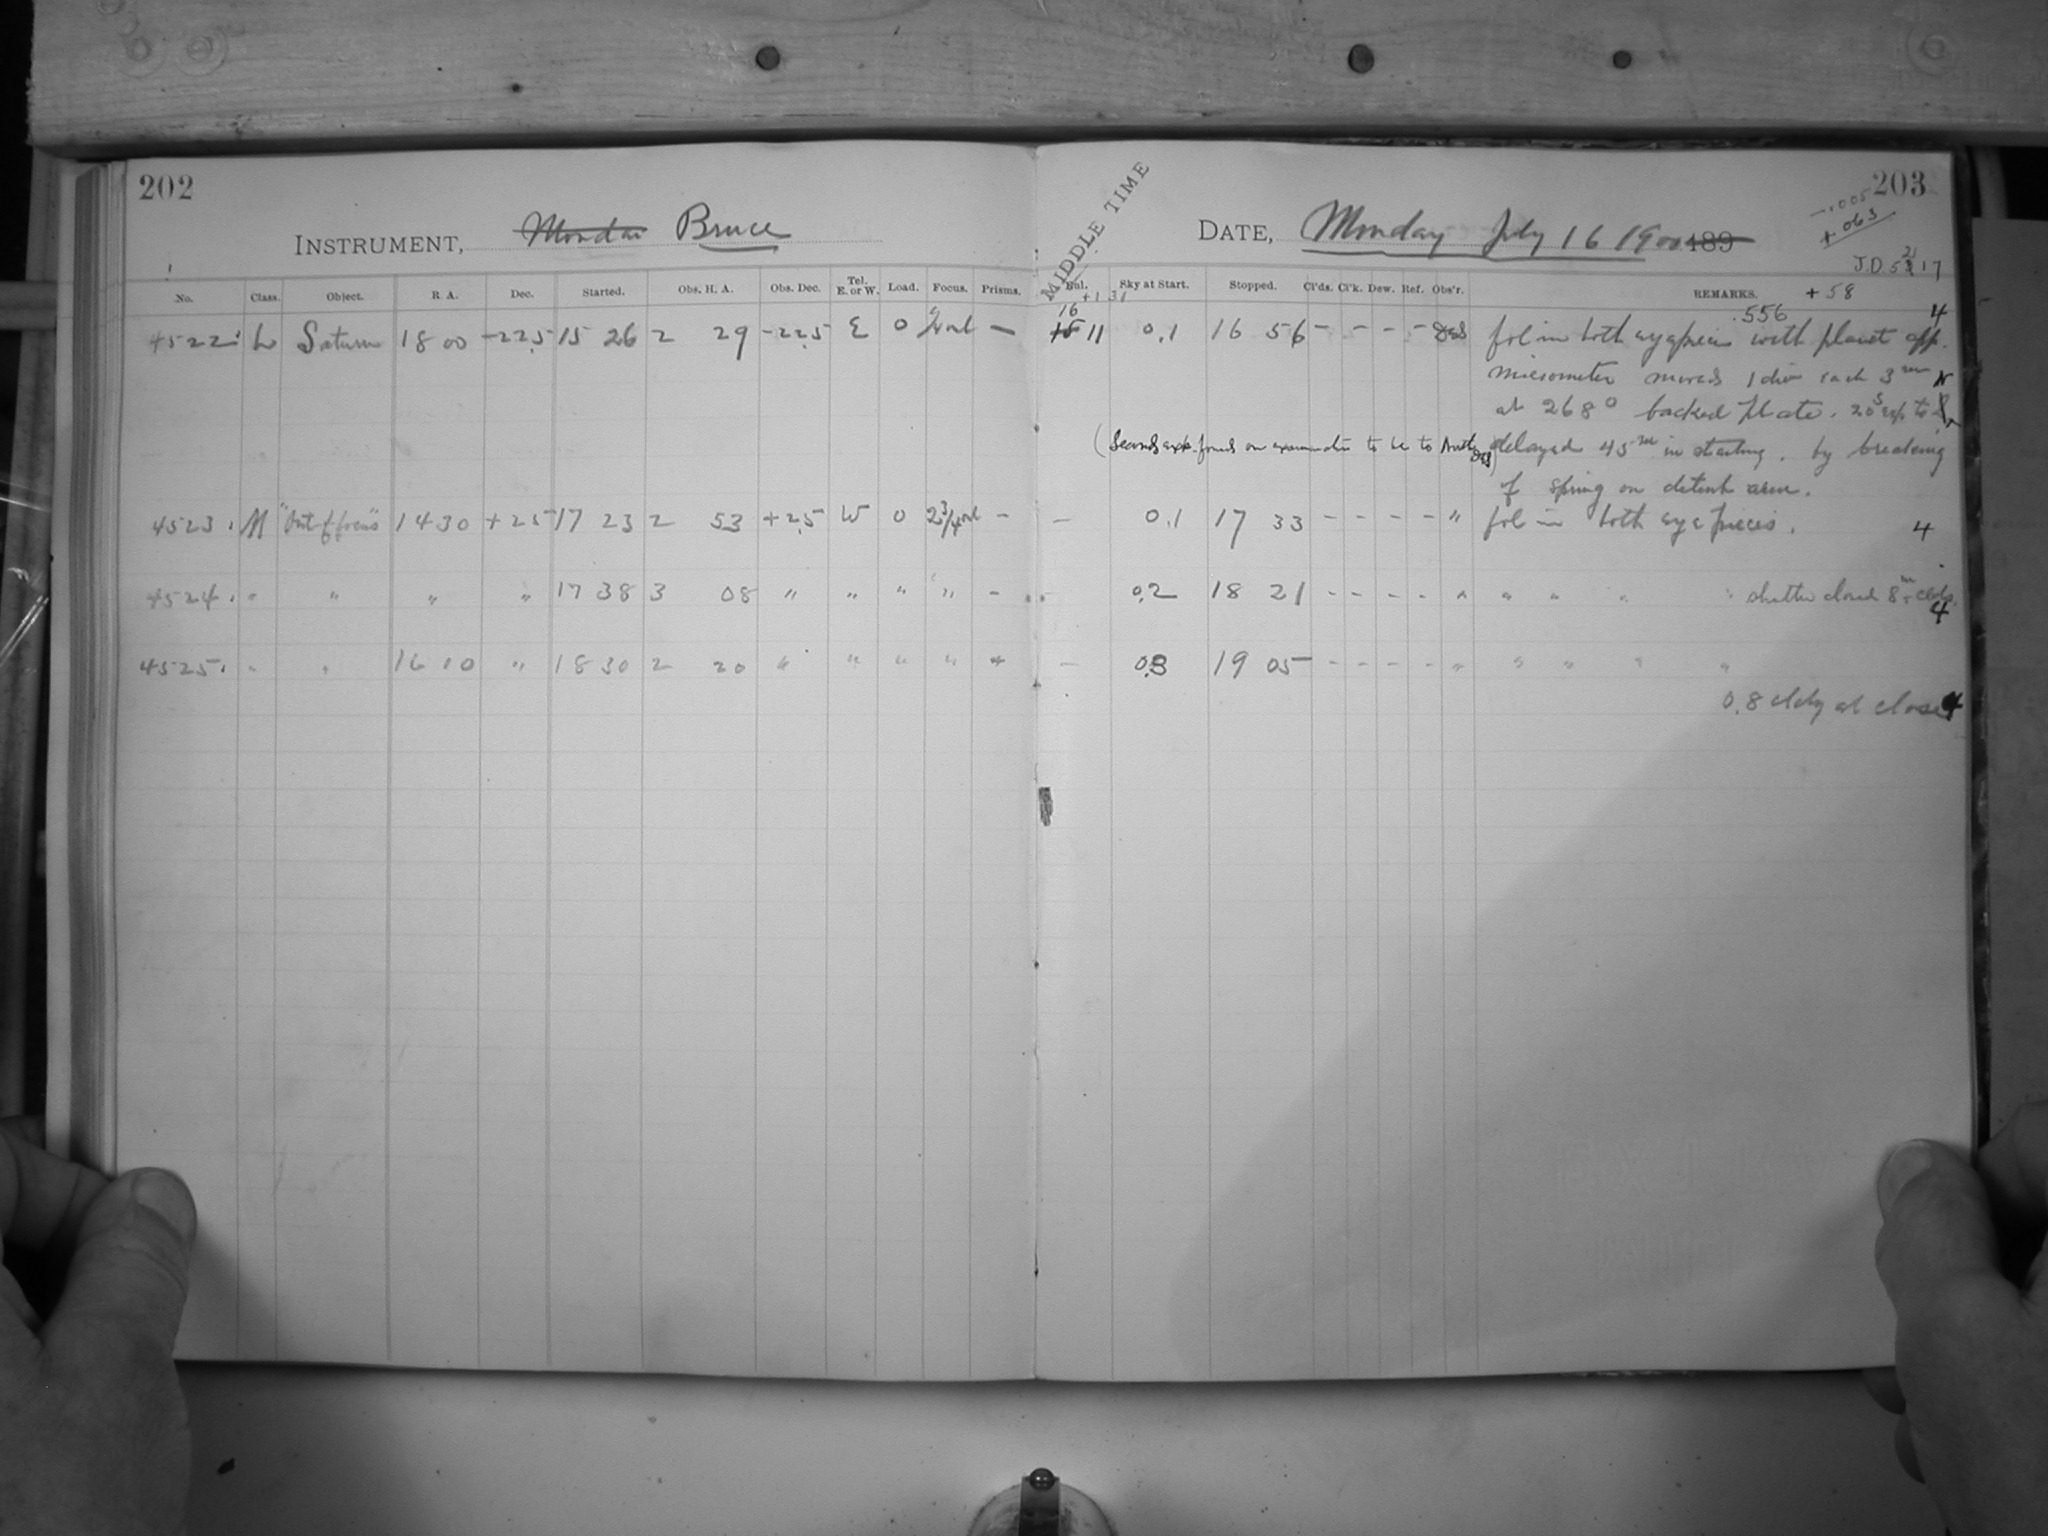 202
203
INSTRUMENT, Monday Bruce
MIDDLE TIME
DATE, Monday July 16 1900 189
-.005
+.063
J.D. 5217
No. Class. Object. R. A. Dec. Started. Obs. H. A. Obs. Dec. Tel. E. or W. Load. Focus. Prisms. Sky at Start. Stopped. Cl'ds. Cl'k. Dew. Ref. Obs'r. REMARKS.
+1 31
+58
.556
4522. L Saturn 18 00 -22.5 15 26 2 29 -22.5 E 0 — 16 11 0.1 16 56 - - - - fol in both eyepieces with planet off. 4
micrometer moved 1 div each 3 min
at 268° backed plate. 20s exp to
(Second exp. found on examination to be to North) delayed 45 sec in starting. by breaking
of spring on detent arm.
4523. M "Out of focus" 14 30 +25 17 23 2 53 +2.5 W 0 2 3/4 out - - 0.1 17 33 - - - - " fol in both eyepieces. 4
4524. " " " " 17 38 3 08 " " " " - - 0.2 18 21 - - - - " " " " " shutter closed 8m clds. 4
4525. " " 16 10 " 18 30 2 20 " " " " - 0.3 19 05 - - - - " " " " "
0.8 cldy at close 4